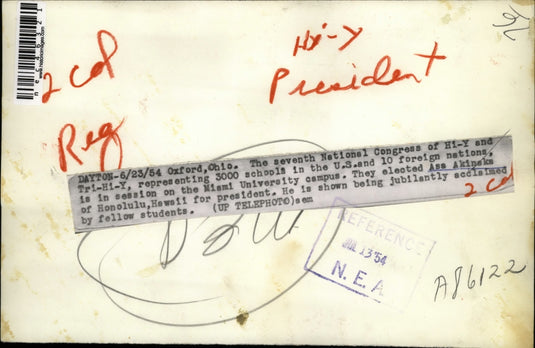 2 col
Hi-Y
President
Reg
DAYTON-6/23/54 Oxford,Ohio. The seventh National Congress of Hi-Y and
Tri-Hi-Y, representing 3000 schools in the U.S.and 10 foreign nations,
is in session on the Miami University campus. They elected Asa Akinaka
of Honolulu,Hawaii for president. He is shown being jubilantly acclaimed
by fellow students. (UP TELEPHOTO)sem
2 col
REFERENCE
JUL 13 '54
N.E.A.
A86122